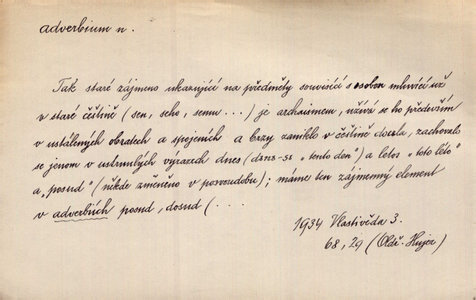 adverbium n.
Tak staré zájmeno ukazující na předměty souvisící s osobou mluvící už
v staré češtině (sen, seho, semu ...) je archaismem, užívá se ho především
v ustálených obratech a spojeních a brzy zaniklo v češtině docela, zachovalo
se jenom v ustrnulých výrazech dnes (dьnь-sь „tento den") a letos „toto léto"
a „posud" (někde změněno v povsoudobu); máme ten zájmenný element
v adverbiích posud, dosud (...
1934 Vlastivěda 3.
68, 29 (Oldř. Hujer)